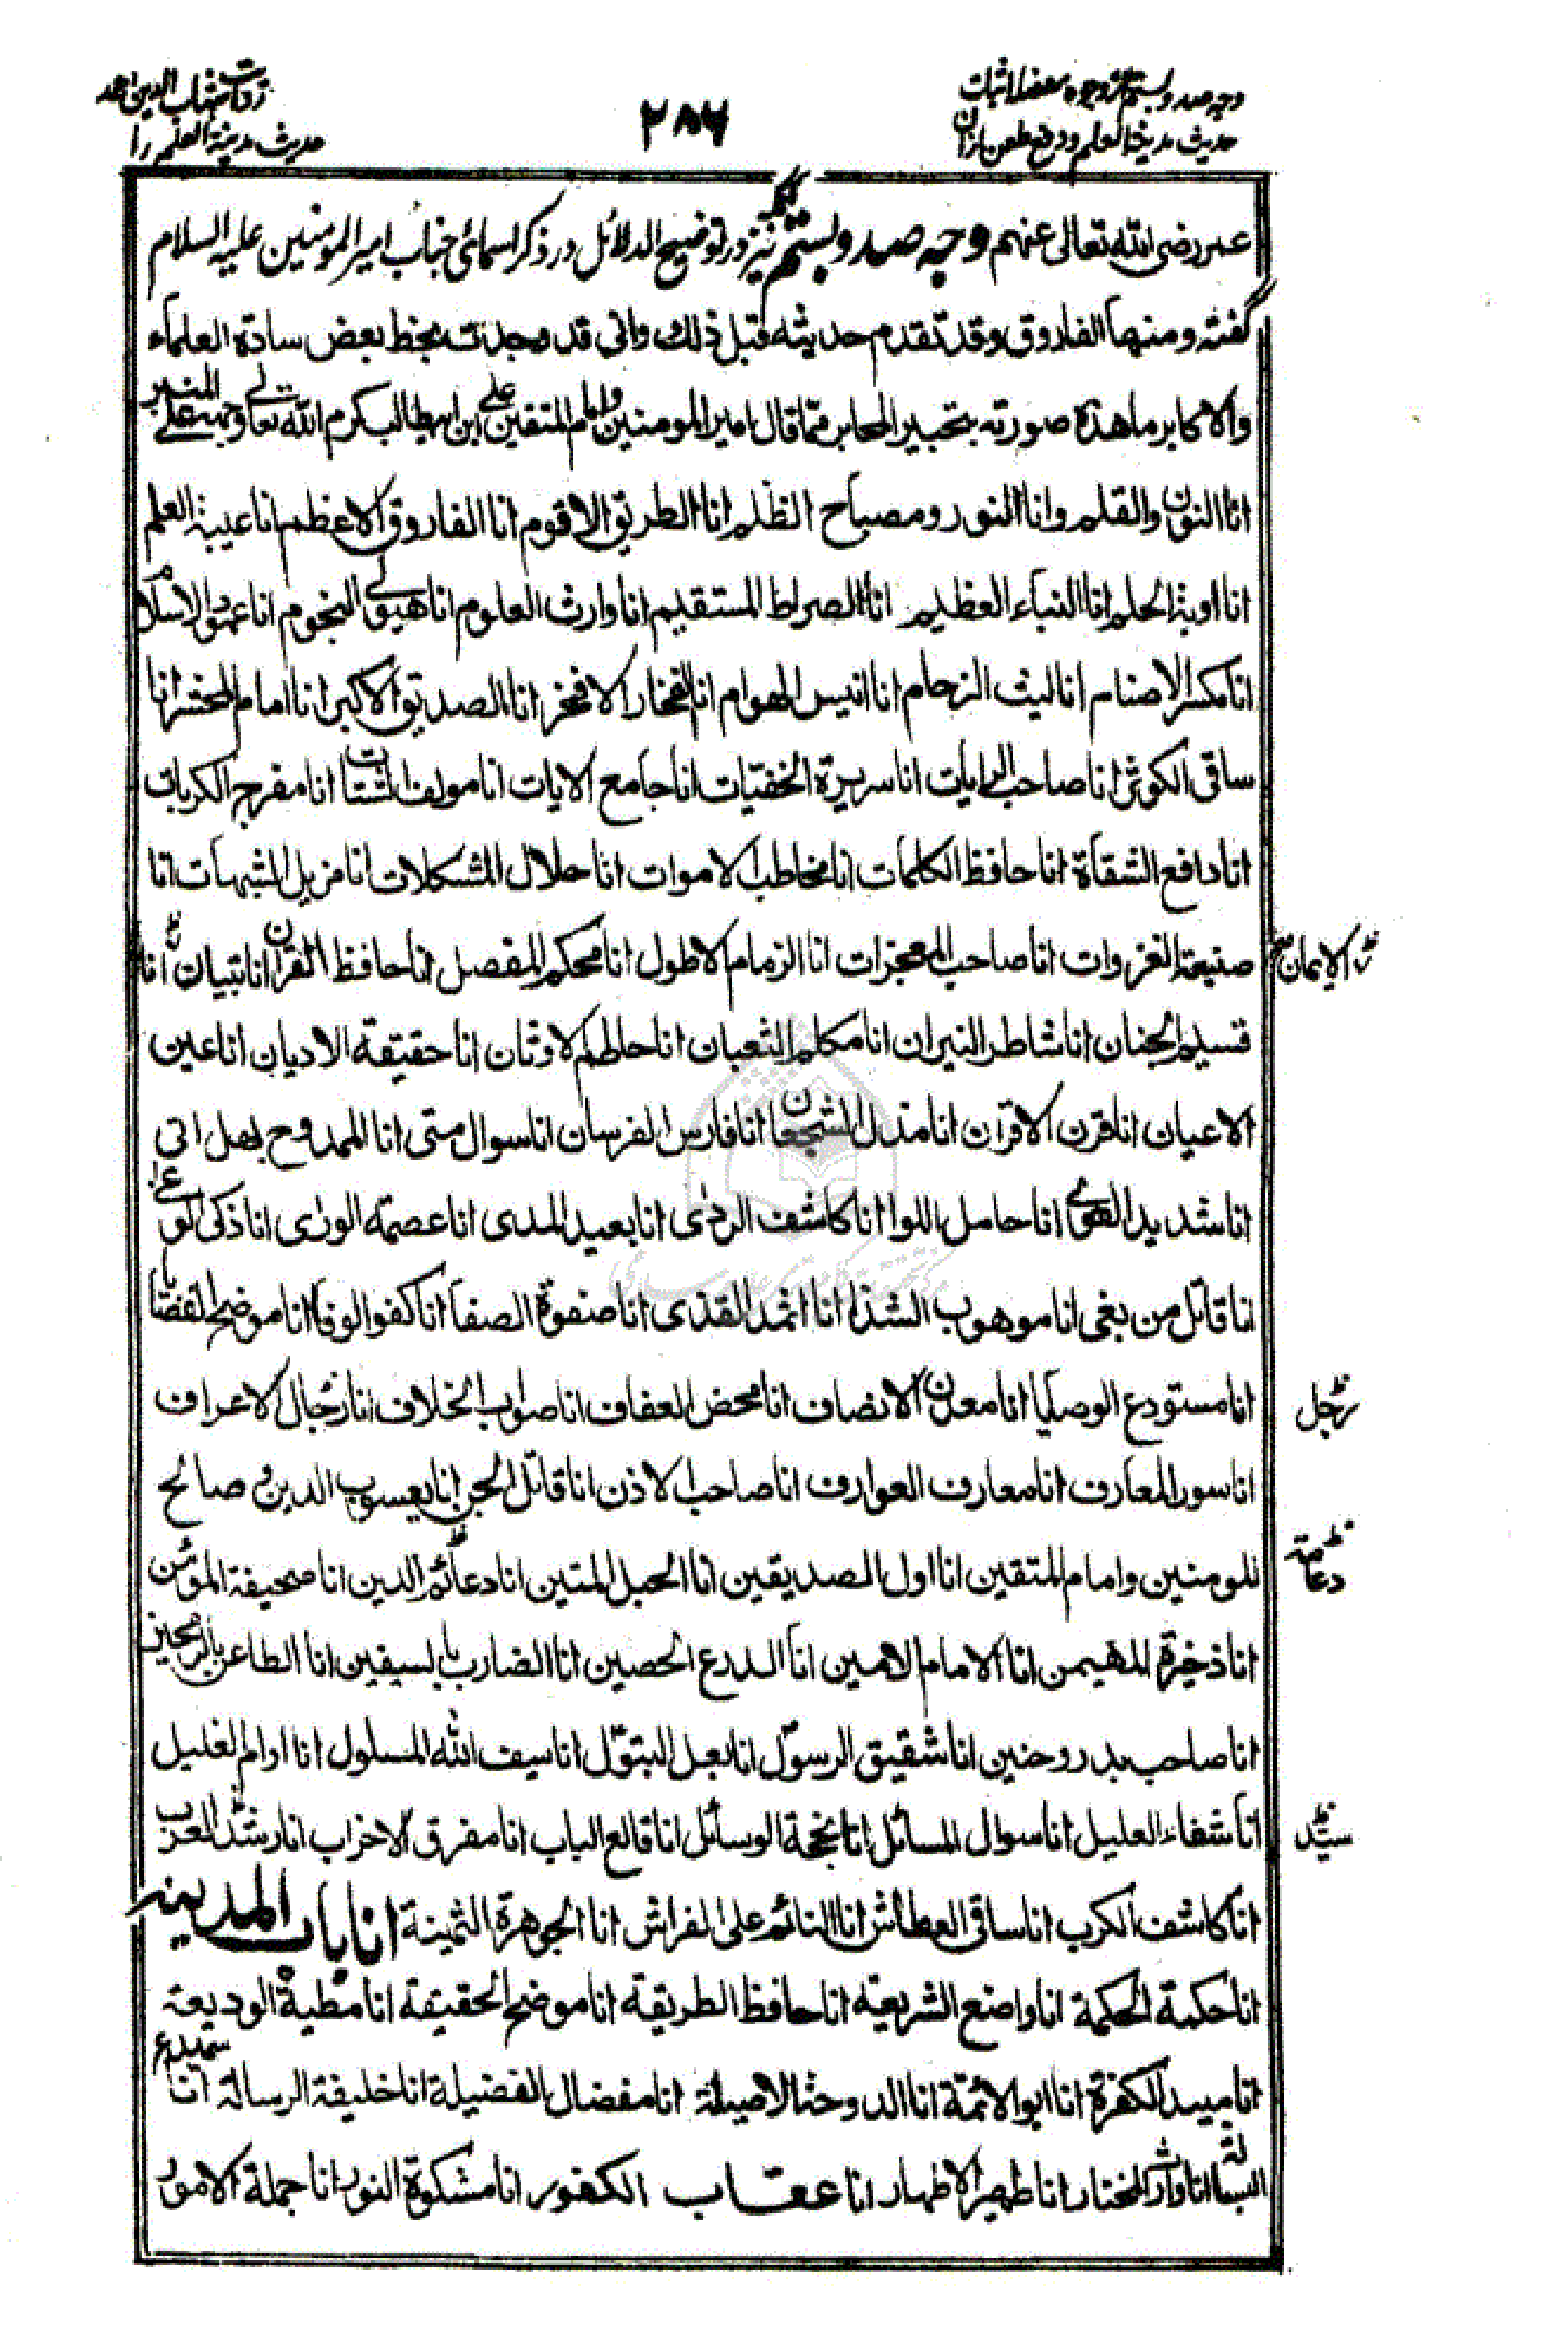 وجه صد و بستم از وجوه معضل اثبات
حدیث مدینة العلم و دفع طعن ازان
۲۸۶
روات شهاب الدین احمد
حدیث مدینة العلم را
عمر رضی الله تعالی عنهم وجه صد و بستم آنکه نیز در توضیح الدلائل در ذکر اسمائی جناب امیر المومنین علیه السلام
گفته ومنها الفاروق وقد تقدم حدیثه قبل ذلك وانی قد وجدت بخط بعض سادة العلماء
والاکابر ما هذه صورته بتحبیر المحابر مما قال امیر المومنین وامام المتقین علی ابن ابیطالب کرم الله تعالی وجهه علی المنبر
انا النون والقلم وانا النور ومصباح الظلم انا الطریق الاقوم انا الفاروق الاعظم انا عیبة العلم
انا اوبة الحلم انا النباء العظیم انا الصراط المستقیم انا وارث العلوم انا هیولی النجوم انا عمود الاسلام
انا مکسر الاصنام انا لیث الزحام انا انیس الهوام انا الفخار الافخر انا الصدیق الاکبر انا امام المحشر انا
ساقی الکوثر انا صاحب الرایات انا سریرة الخفیات انا جامع الایات انا مولف الشتات انا مفرج الکربات
انا دافع الشقاة انا حافظ الکلمات انا مخاطب الاموات انا حلال المشکلات انا مزیل الشبهات انا
صنیعة الغزوات انا صاحب المعجزات انا الزمام الاطول انا محکم المفصل انا حافظ القران انا تبیان انا
الایمان
قسیم الجنان انا شاطر النیران انا مکلم الثعبان انا حاطم الاوثان انا حقیقة الادیان انا عین
الاعیان انا قرن الاقران انا مذل الشجعان انا فارس الفرسان انا سوال متی انا الممدوح بهل اتی
انا شدید القوی انا حامل اللوا انا کاشف الردی انا بعید المدی انا عصمة الوری انا ذکی الوغی
انا قاتل من بغی انا موهوب الشذا انا اثمد القذی انا صفوة الصفا انا کفو الوفا انا موضح القضایا
انا مستودع الوصایا انا معدن الانصاف انا محض العفاف انا صواب الخلاف انا رجال الاعراف
رجل
انا سور المعارف انا معارف العوارف انا صاحب الاذن انا قاتل الجن انا یعسوب الدین و صالح
المومنین وامام المتقین انا اول الصدیقین انا الحبل المتین انا دعائم الدین انا صحیفة المؤمن
دعامة
انا ذخیرة المهیمن انا الامام الامین انا الدرع الحصین انا الضارب بالسیفین انا الطاعن بالرمحین
انا صاحب بدر وحنین انا شقیق الرسول انا بعل البتول انا سیف الله المسلول انا اوام الغلیل
انا شفاء العلیل انا سوال المسائل انا نجحة الوسائل انا قالع الباب انا مفرق الاحزاب انا رشد العرب
سید
انا کاشف الکرب انا ساقی العطاش انا النائم علی الفراش انا الجوهرة الثمینة انا باب المدینة
انا حکمة الحکمة انا واضع الشریعة انا حافظ الطریقة انا موضح الحقیقة انا مطیة الودیعة
انا مبید الکفرة انا ابو الائمة انا الدوحة الاصیلة انا مفضال الفضیلة انا خلیفة الرسالة انا سمیدع
البسالة انا وارث المختار انا طهیر الاطهار انا عقاب الکفور انا مشکوة النور انا جملة الامور